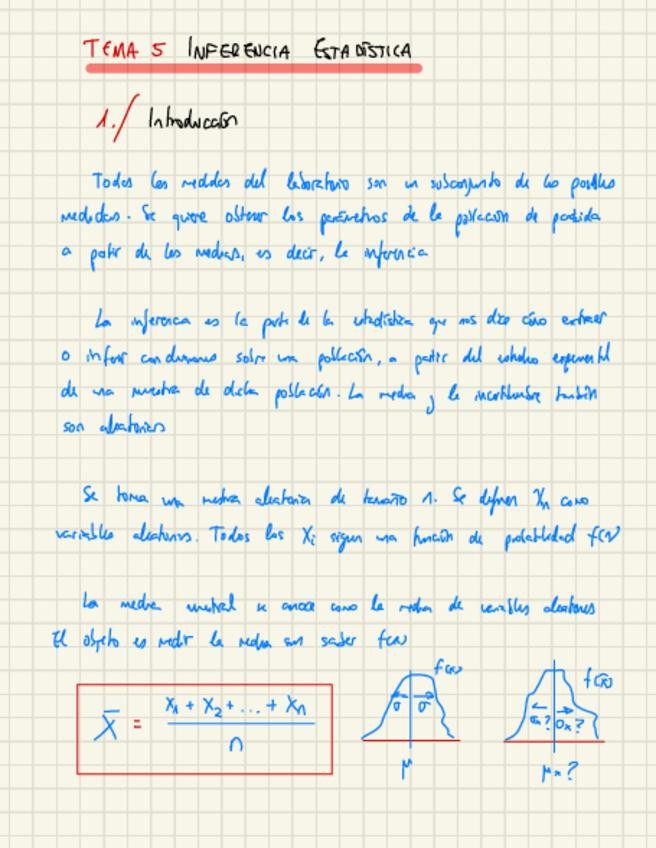 TEMA 5 INFERENCIA ESTADÍSTICA
1./ Introducción
Todas las medidas del laboratorio son un subconjunto de las posibles
medidas. Se quiere obtener los parámetros de la población de partida
a partir de las medidas, es decir, la inferencia
La inferencia es la parte de la estadística que nos dice cómo extraer
o inferir conclusiones sobre una población, a partir del estudio experimental
de una muestra de dicha población. La media y la incertidumbre también
son aleatorias
Se toma una muestra aleatoria de tamaño n. Se definen Xn como
variables aleatorias. Todas las Xi siguen una función de probabilidad f(x)
La media muestral se conoce como la media de variables aleatorias
El objeto es medir la media sin saber f(x)
X̄ = X1 + X2 + ... + Xn / n
f(x) f(x̄)
σ σ σx? σx?
μ μx?